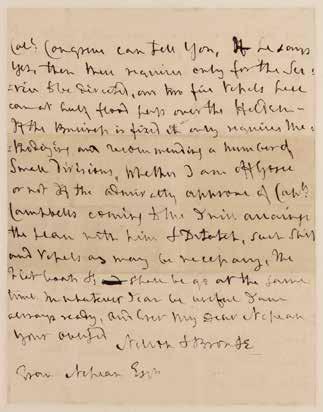 Capt. Congreve can tell You, If he says
yes, then there requires only for the Ser-
vice to be directed, our two fire Vessels here
can at half flood pass over the
If the Business is fixed it only requires the
and recommending a number of
Small divisions, Whether I am off Goree
or not If the admiralty approve of Capt.
Campbells coming to Me I will arrange
the plan with him & Dispatch, such Ships
and Vessels as may be necessary, the
Flat boats &c shall be go at the same
time. In whatever I can be useful I am
always ready, and Ever My dear Nepean
Your obliged
Nelson & Bronte
Evan Nepean Esqr.